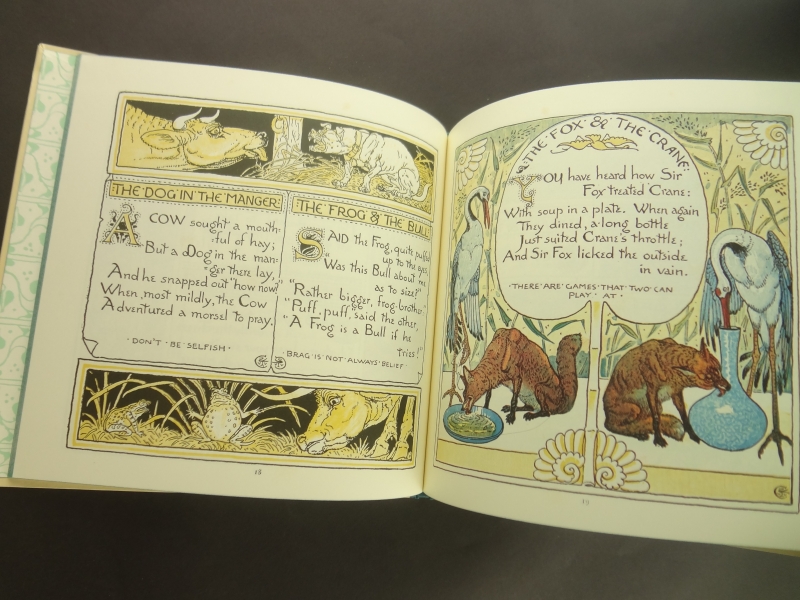 THE DOG IN THE MANGER:
A COW sought a mouth-
-ful of hay;
But a Dog in the man-
-ger there lay,
And he snapped out "how now?"
When, most mildly, the Cow
Adventured a morsel to pray.
· DON'T · BE · SELFISH ·
THE FROG & THE BULL
SAID the Frog, quite puffed
up to the eyes,
"Was this Bull about me
as to size?"
"Rather bigger, frog-brother."
"Puff, puff," said the other,
"A Frog is a Bull if he
tries!"
BRAG · IS · NOT · ALWAYS · BELIEF
18
·THE·FOX·&·THE·CRANE·
YOU have heard how Sir
Fox treated Crane:
With soup in a plate. When again
They dined, a long bottle
Just suited Crane's throttle;
And Sir Fox licked the outside
in vain.
·THERE·ARE·GAMES·THAT·TWO·CAN
PLAY · AT ·
19